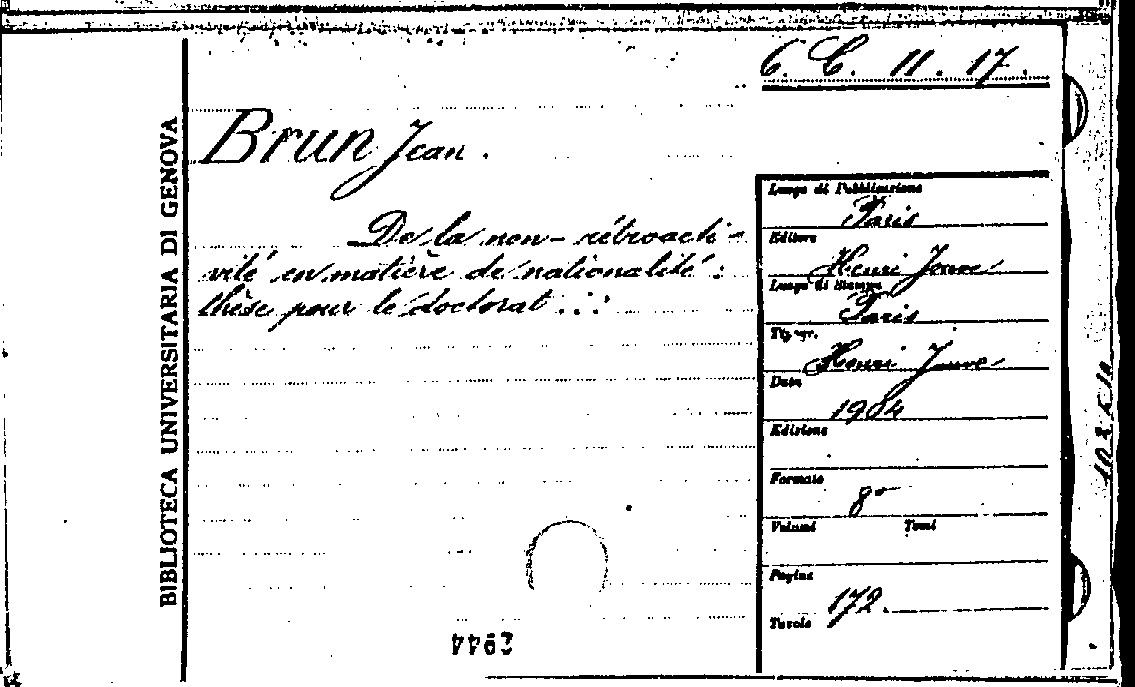 6. C. 11. 17.
BIBLIOTECA UNIVERSITARIA DI GENOVA
Brun Jean.
De la non-rétroacti-
vité en matière de nationalité:
thèse pour le doctorat ...
Luogo di Pubblicazione
Paris
Editore
Henri Jouve
Luogo di Stampa
Paris
Tipogr.
Henri Jouve
Data
1904
Edizione
Formato
8°
Volumi Tomi
Pagine
172.
Tavole